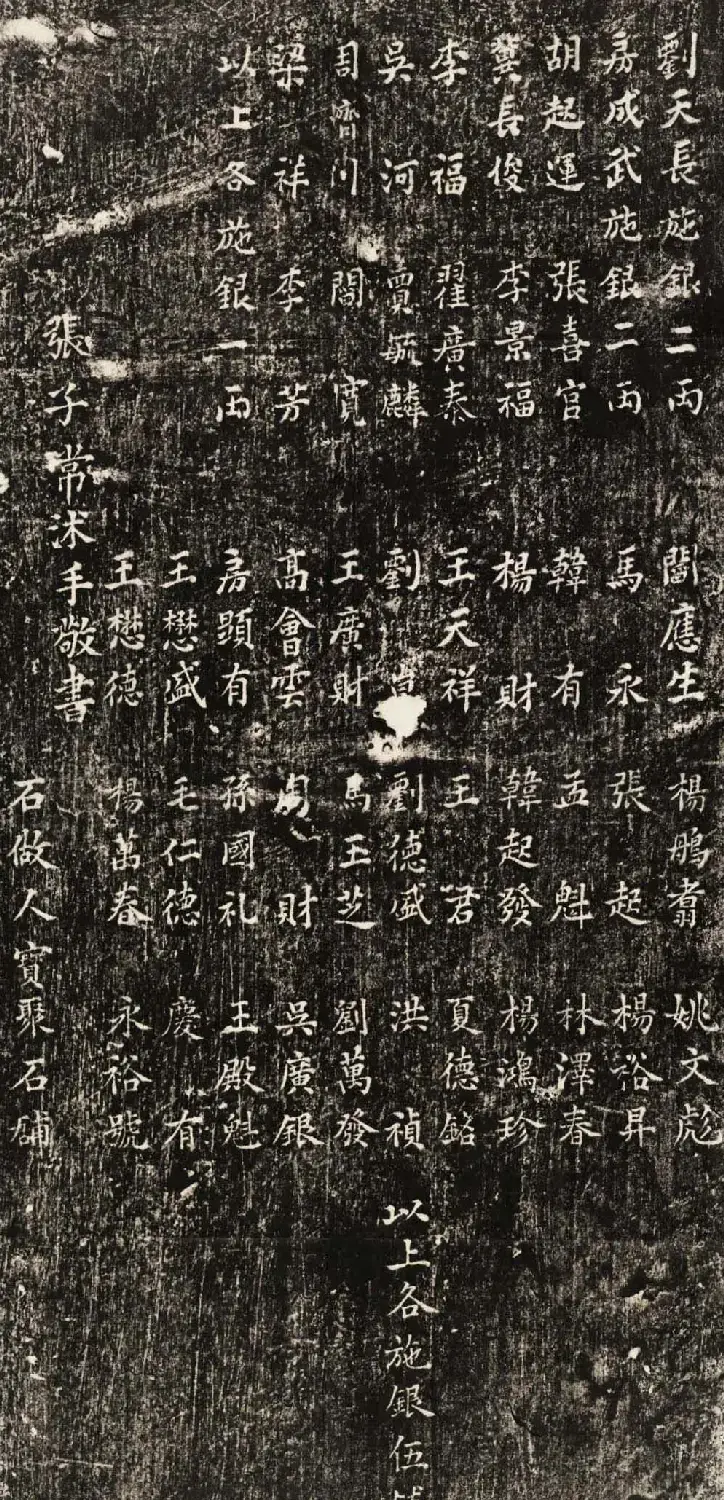 劉天長施銀二兩 閻應生 楊鵬翥 姚文彪
房成武施銀二兩 馬永 張起 楊裕昇
胡起運 張喜官 韓有 孟魁 林澤春
冀長俊 李景福 楊財 韓起發 楊鴻珍
李福 翟廣泰 王天祥 王君 夏德銘
吳河 賈毓麟 劉 劉德盛 洪禎 以上各施銀伍
周濟川 閻寬 王廣財 馬王芝 劉萬發
梁祥 李芳 高會雲 周財 吳廣銀
以上各施銀一兩 房顕有 孫國礼 王殿魁
王懋盛 毛仁德 慶有
王懋德 楊萬春 永裕號
張子常沐手敬書
石做人寳聚石舖